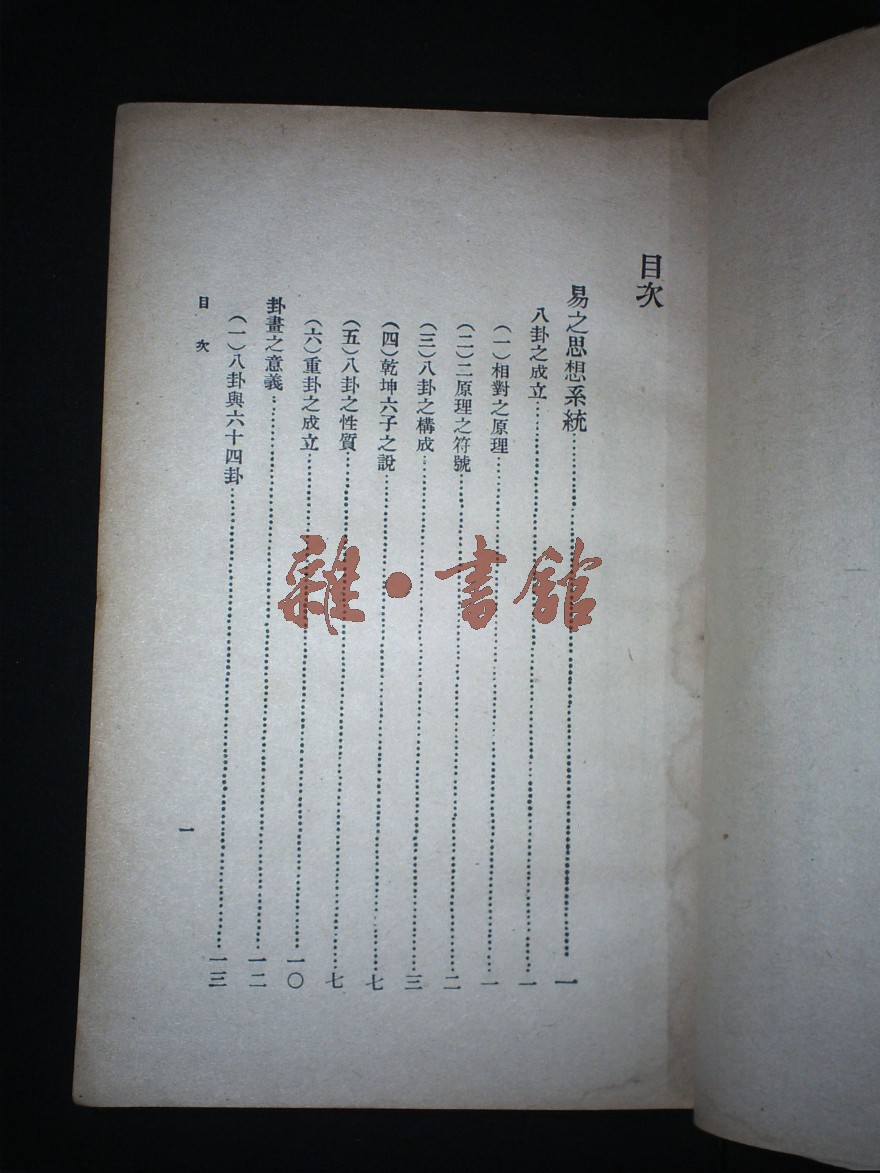 目次
易之思想系統……一
八卦之成立……一
(一)相對之原理……一
(二)二原理之符號……二
(三)八卦之構成……三
(四)乾坤六子之說……七
(五)八卦之性質……七
(六)重卦之成立……一〇
卦畫之意義……一二
(一)八卦與六十四卦……一三
目次
一
雜·書館